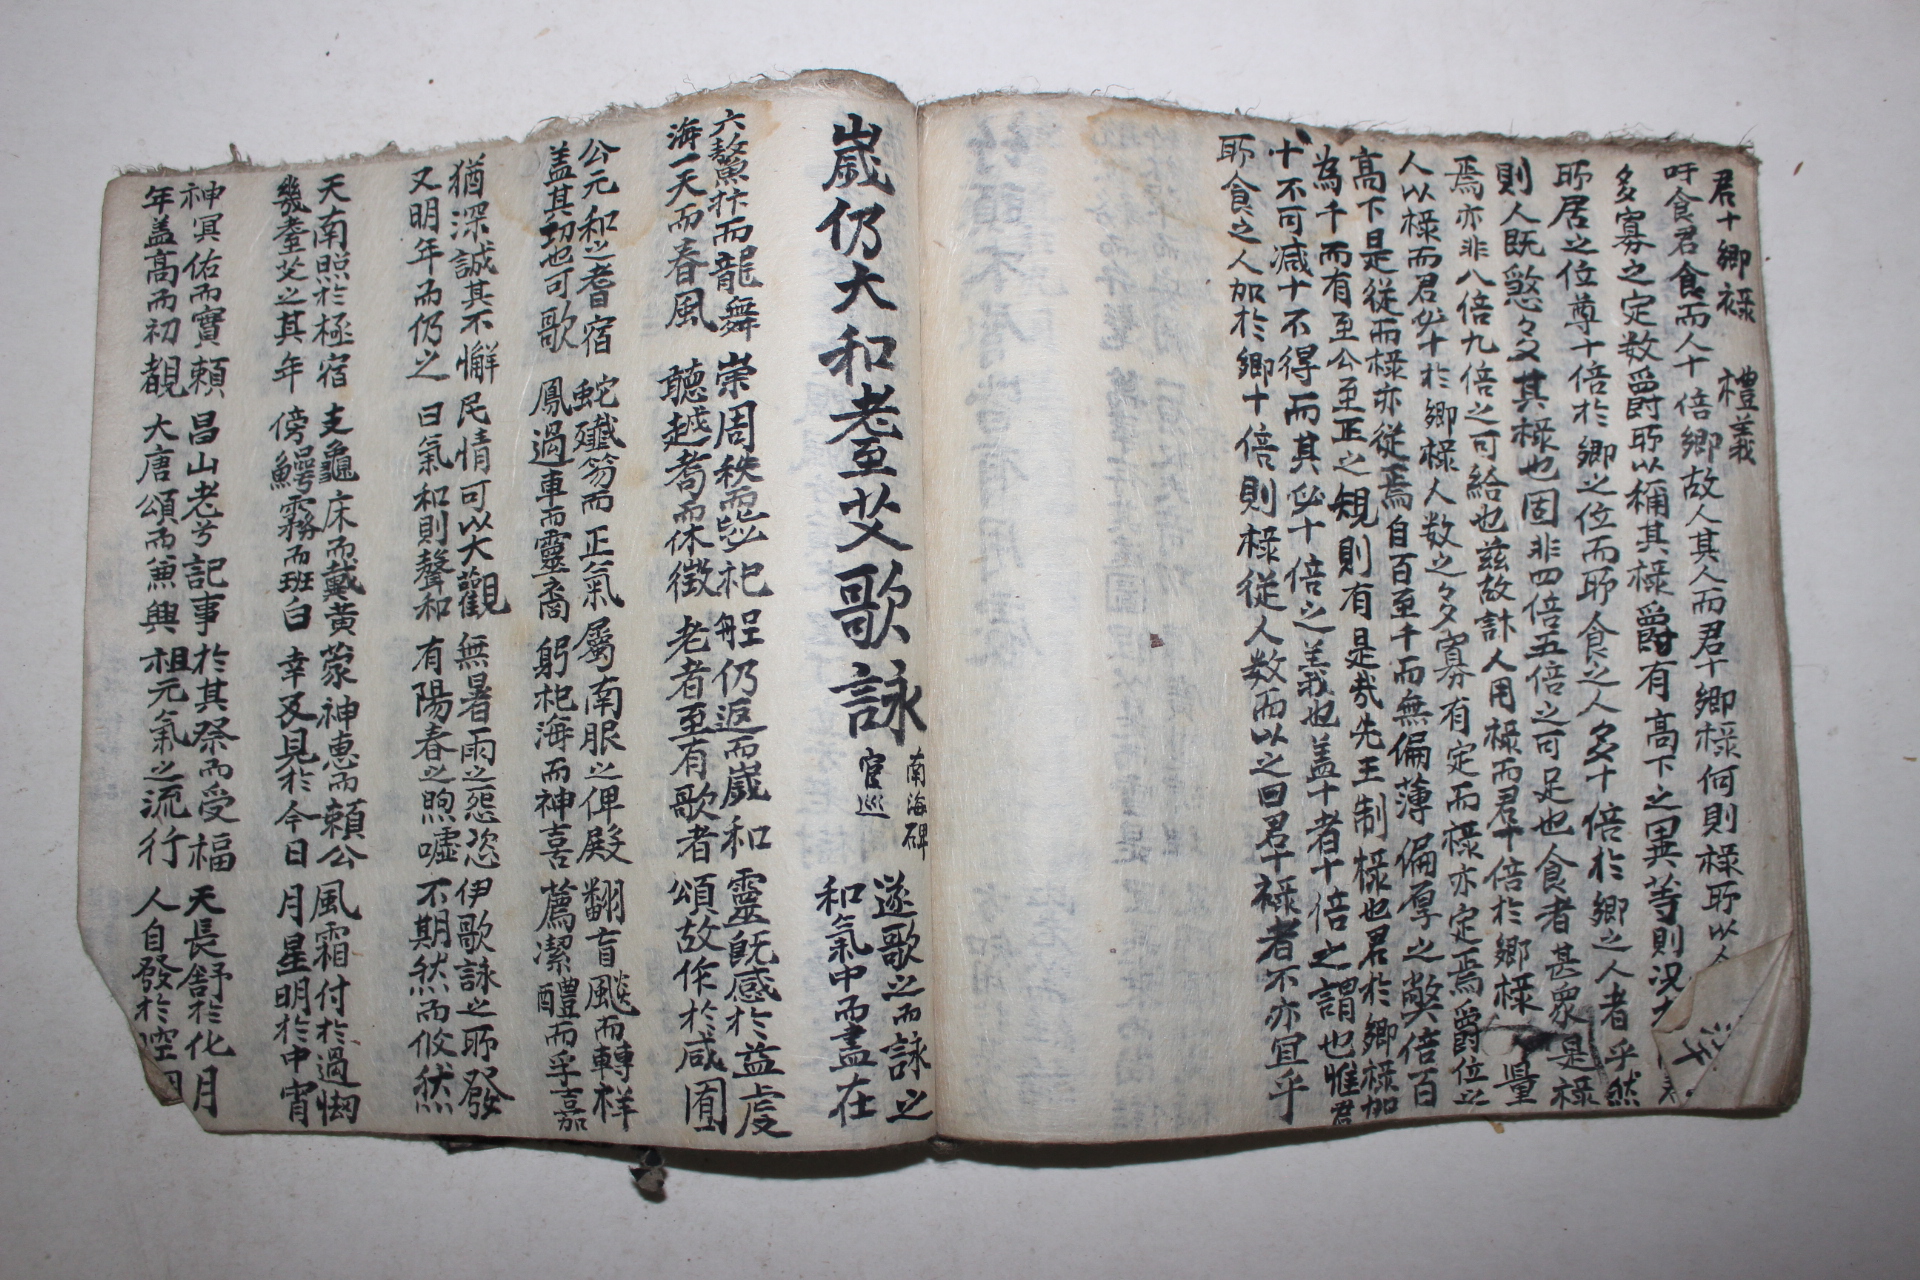 君十卿祿 禮義
吁食君食而人十倍卿故人其人而君十卿祿何則祿所以
多寡之定数爵所以稱其祿爵有高下之異等則況
所居之位尊十倍於卿之位而所食之人多十倍於卿之人者乎然
則人既愁々又其祿也固非四倍五倍之可足也食者甚衆是祿
焉亦非八倍九倍之可給也玆故計人用祿而君十倍於卿祿量
人以祿而君必十於卿祿人数之多寡有定而祿亦定焉爵位之
高下是從而祿亦從焉自百至千而無偏薄偏厚之獘倍百
為千而有至公至正之規則有是哉先王制祿也君於卿祿加
十不可减十不得而其必十倍之義也盖十者十倍之謂也惟君
所食之人加於卿十倍則祿從人数而以之曰君十祿者不亦宜乎
歲仍大和老至艾歌詠
南海碑
官巡
遂歌之而詠之
和氣中而盡在
六鰲抃而龍舞 崇周秩而毖祀 舡仍返而歲和 靈旣感於益虔
海一天而春風 聽越耈而休徵 老者至有歌者 頌故作於咸囿
公元和之耆宿 蛇殲笏而正氣 屬南服之俾殿 翻盲飈而轉祥
盖其功也可歌 鳳過車而靈裔 躬祀海而神喜 薦潔醴而孚嘉
猶深誠其不懈 民情可以大觀 無暑雨之怨恣 伊歌詠之所發
又明年而仍之 曰氣和則聲和 有陽春之煦噓 不期然而攸然
天南照於極宿 支龜床而戴黃 蒙神惠而賴公 風霜付於過㥘
幾耋艾之其年 傍鱷霧而班白 幸及見於今日 月星明於中宵
神冥佑而實賴 昌山老兮記事 於其祭而受福 天長舒於化月
年盖高而初覩 大唐頌而兼興 祖元氣之流行 人自發於空